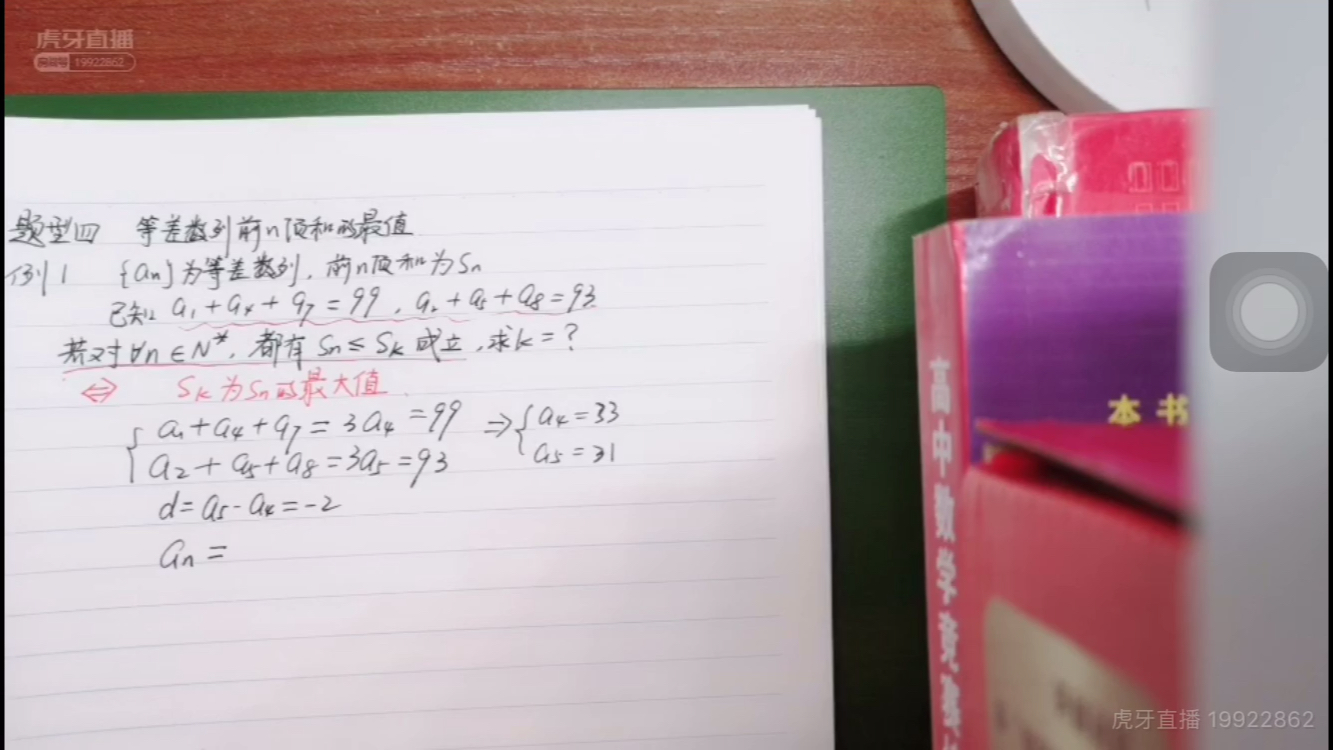 虎牙直播
房间号 19922862
题型四 等差数列前n项和的最值
例1 {an}为等差数列，前n项和为Sn
已知 a₁+a₄+a₇=99，a₂+a₅+a₈=93
若对∀n∈N*，都有 Sn≤Sk 成立，求k=？
⇔ Sk为Sn的最大值
a₁+a₄+a₇=3a₄=99 ⇒ a₄=33
a₂+a₅+a₈=3a₅=93 a₅=31
d=a₅-a₄=-2
an=
高中数学竞赛
本书
虎牙直播 19922862